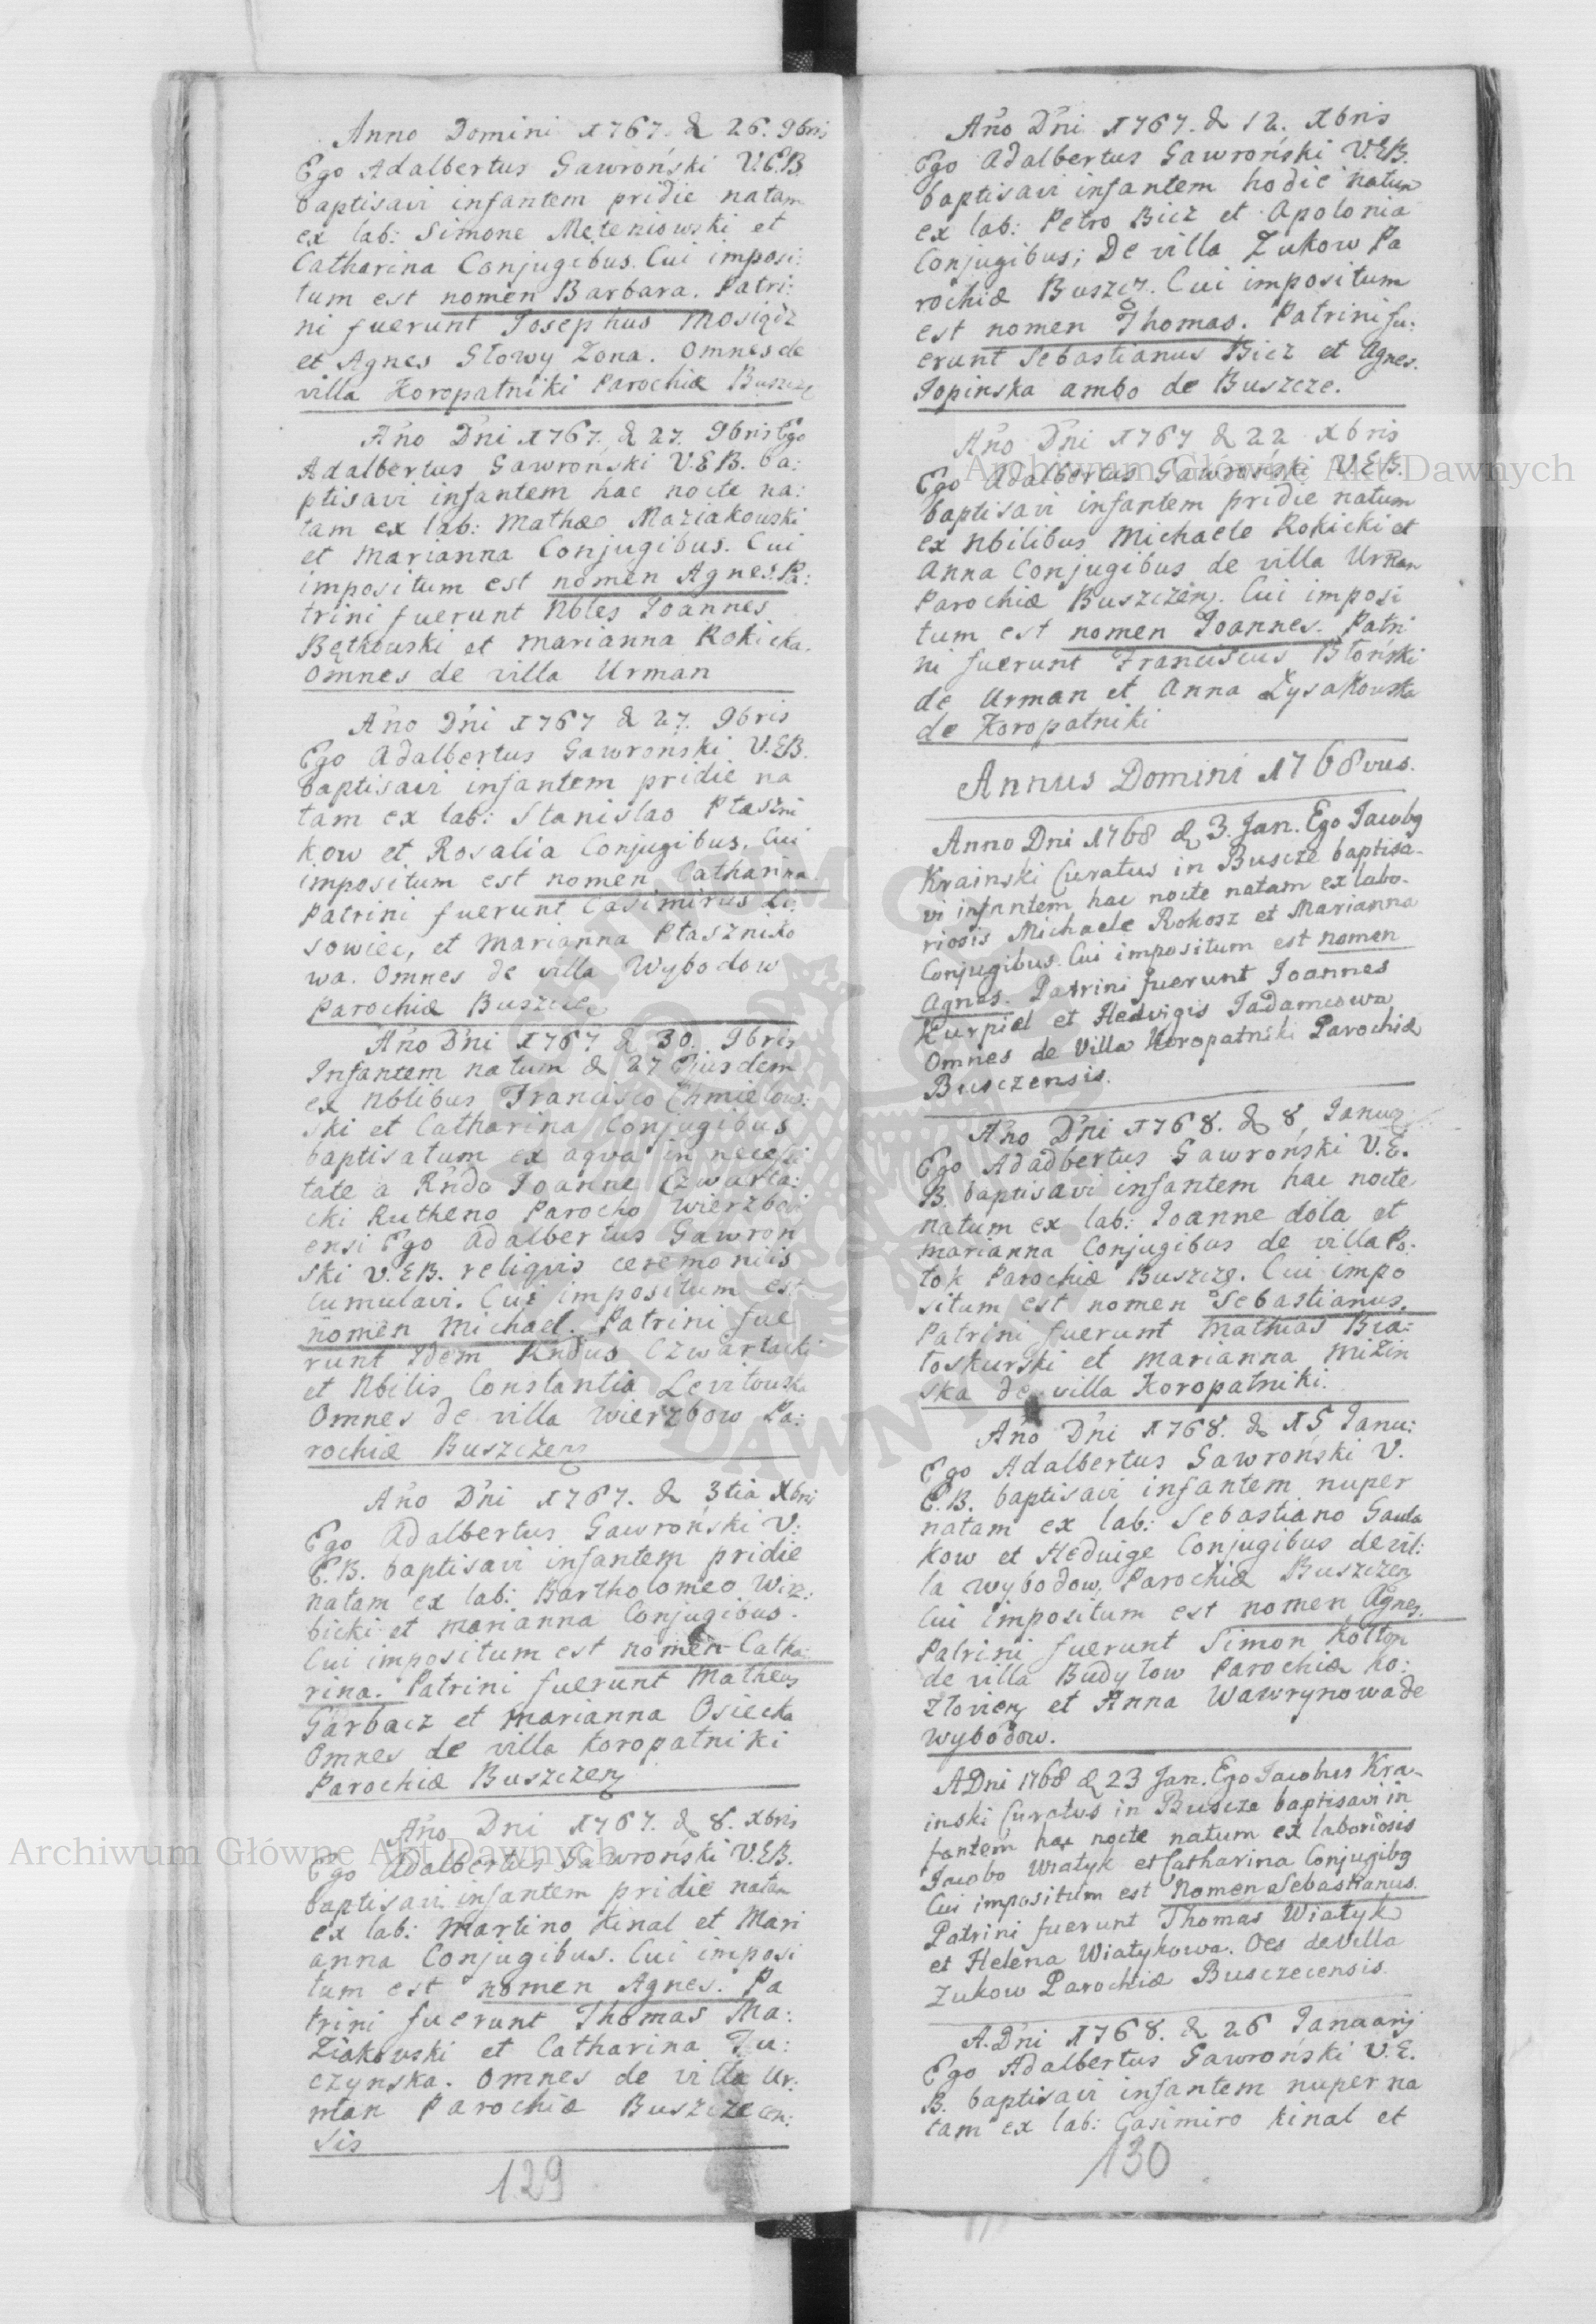 Anno Domini 1767. d 26. 9bris
Ego Adalbertus Gawroński V.E.B.
baptisavi infantem pridie natam
ex lab: Simone Męteniowski et
Catharina Conjugibus. Cui imposi:
tum est nomen Barbara. Patri:
ni fuerunt Josephus Mosiądz
et Agnes Głowy Zona. Omnes de
villa Koropatniki Parochiæ Buszcze
Año Dñi 1767. d 27. 9bris Ego
Adalbertus Gawroński V.E.B. ba:
ptisavi infantem hac nocte na:
tam ex lab: Mathæo Maziakowski
et Marianna Conjugibus. Cui
impositum est nomen Agnes. Pa:
trini fuerunt Nbles Joannes
Bętkowski et Marianna Rokicka.
Omnes de villa Urman
Año Dñi 1767 d 27. 9bris
Ego Adalbertus Gawroński V.E.B.
baptisavi infantem pridie na
tam ex lab: Stanislao Ptaszni
kow et Rosalia Conjugibus. Cui
impositum est nomen Catharina.
Patrini fuerunt Casimirus Li:
sowiec, et Marianna Ptaszniko
wa. Omnes de villa Wybodow
Parochiæ Buszcze
Año Dñi 1767 d 30. 9bris
Infantem natum d 27 Ejusdem
ex Nblibus Francisco Chmielow:
ski et Catharina Conjugibus
baptisatum ex aqva in necessi
tate a Rndo Joanne Czwarta:
cki Rutheno Parocho Wierzbov
ensi Ego Adalbertus Gawron
ski V.E.B. religvis ceremoniis
cumulavi. Cui impositum est
nomen Michael. Patrini fue
runt Idem Rndus Czwartacki
et Nbilis Constantia Levitouska
Omnes de villa Wierzbow Pa:
rochiæ Buszczen
Año Dñi 1767. d 3tia Xbris
Ego Adalbertus Gawroński V:
E.B. baptisavi infantem pridie
natam ex lab: Bartholomeo Wirz:
bicki et Marianna Conjugibus.
Cui impositum est nomen Catha:
rina. Patrini fuerunt Matheus
Garbacz et Marianna Osiecka
Omnes de villa Koropatniki
Parochiæ Buszczen
Año Dñi 1767. d 8. Xbris
Ego Adalbertus Gawroński V.E.B.
baptisavi infantem pridie natam
ex lab: Martino Kinal et Mari
anna Conjugibus. Cui imposi
tum est nomen Agnes. Pa
trini fuerunt Thomas Ma:
ziakowski et Catharina Tu:
czynska. Omnes de villa Ur:
man Parochiæ Buszczecen:
sis
129
Año Dñi 1767. d 12. Xbris
Ego Adalbertus Gawroński V.E.B.
baptisavi infantem hodie natum
ex lab: Petro Bicz et Apolonia
Conjugibus; De villa Zukow Pa
rochiæ Buszcz. Cui impositum
est nomen Thomas. Patrini fu:
erunt Sebastianus Bicz et Agnes.
Topinska ambo de Buszcze.
Año Dñi 1767 d 22 Xbris
Ego Adalbertus Gawroński V.E.B.
baptisavi infantem pridie natum
ex Nbilibus Michaele Rokicki et
Anna Conjugibus de villa Urman
Parochiæ Buszczzen. Cui imposi
tum est nomen Joannes. Patri
ni fuerunt Franciscus Błoński
de Urman et Anna Łysakowska
de Koropatniki
Annus Domini 1768vus.
Anno Dni 1768 d 3. Jan. Ego Jacobus
Krainski Curatus in Buscze baptisa-
vi infantem hac nocte natam ex labo-
riosis Michaele Rokosz et Marianna
Conjugibus. Cui impositum est nomen
Agnes. Patrini fuerunt Joannes
Kurpiel et Hedvigis Tadameowa
Omnes de Villa Koropatniki Parochiæ
Busczensis.
Año Dñi 1768. d 8 Januar
Ego Adadbertus Gawroński V.E.
B. baptisavi infantem hac nocte
natum ex lab: Joanne dola et
Marianna Conjugibus de villa Po:
tok Parochiæ Buszcze. Cui impo
situm est nomen Sebastianus.
Patrini fuerunt Mathias Bia:
łoskurski et Marianna Mizin
ska de villa Koropatniki.
Año Dñi 1768. d 15 Janu:
Ego Adalbertus Gawroński V.
E.B. baptisavi infantem nuper
natam ex lab: Sebastiano Gawla
kow et Heduige Conjugibus de vil:
la Wybodow. Parochiæ Buszczen
Cui impositum est nomen Agnes.
Patrini fuerunt Simon Kołton
de villa Budyłow Parochiæ Ko:
zlovien et Anna Wawrynowa de
Wybodow.
A Dni 1768 d 23 Jan. Ego Jacobus Kra-
inski Curatus in Buscze baptisavi in
fantem hac nocte natum ex laboriosis
Jacobo Wiatyk et Catharina Conjugibus
Cui impositum est Nomen Sebastianus.
Patrini fuerunt Thomas Wiatyk
et Helena Wiatykowa. Oes de Villa
Zukow Parochiæ Busczecensis.
A. Dñi 1768. d 26 Januarij
Ego Adalbertus Gawroński V.E.
B. baptisavi infantem nuper na
tam ex lab: Casimiro Kinal et
130
Archiwum Główne Akt Dawnych
Archiwum Główne Akt Dawnych